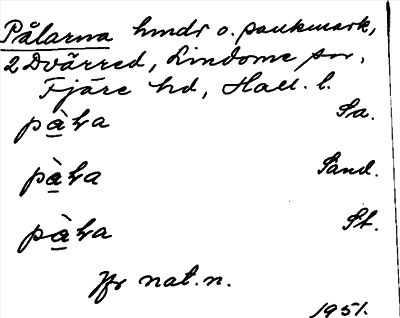 Pålarna hmdr o. sankmark,
2 Dvärred, Lindome sn,
Fjäre hd, Hall. l.
pàƚa Sa.
pàƚa Sand.
pàƚa St.
Jfr nat.n.
1951.